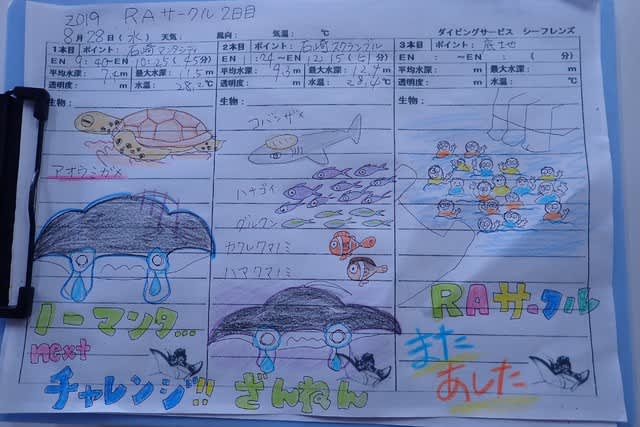 2019 RAサークル 2日目
8月28日(水) 天気: 風向: 気温: ℃ ダイビングサービス シーフレンズ
1本目 ポイント: 石崎マンタシティ
EN 9:40~EN 10:25 (45分)
平均水深: 7.4m 最大水深: 11.5m
透明度: m 水温: 28.2℃
生物:
アオウミガメ
ノーマンタ...
next
チャレンジ!!
2本目 ポイント: 石崎スクランブル
EN 11:24~EN 12:15 (51分)
平均水深: 9.3m 最大水深: 12.9m
透明度: m 水温: 28.4℃
生物:
コバンザメ
ハナゴイ
グルクン
カクレクマノミ
ハマクマノミ
ざんねん
3本目 ポイント: 底地
EN : ~EN : ( 分)
平均水深: m 最大水深: m
透明度: m 水温: ℃
生物:
RAサークル
また
あした